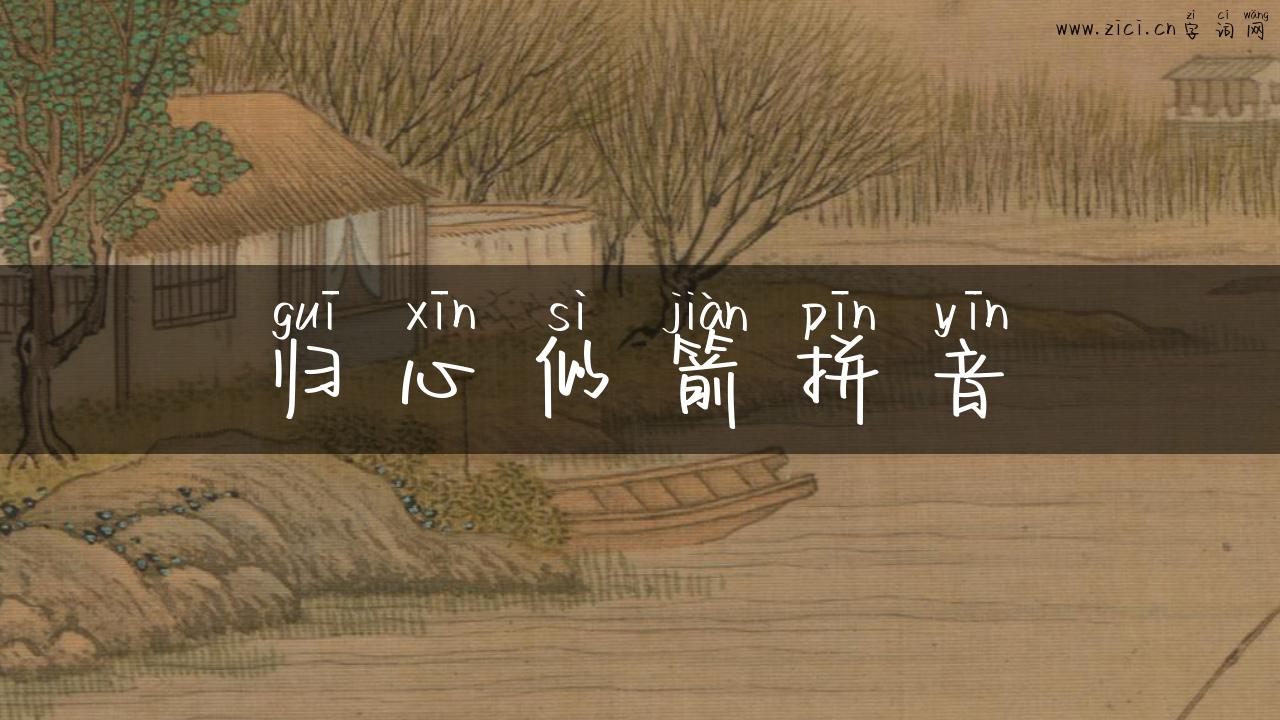 zì cí wǎng
www.zici.cn 字词网
guī xīn sì jiàn pīn yīn
归心似箭拼音